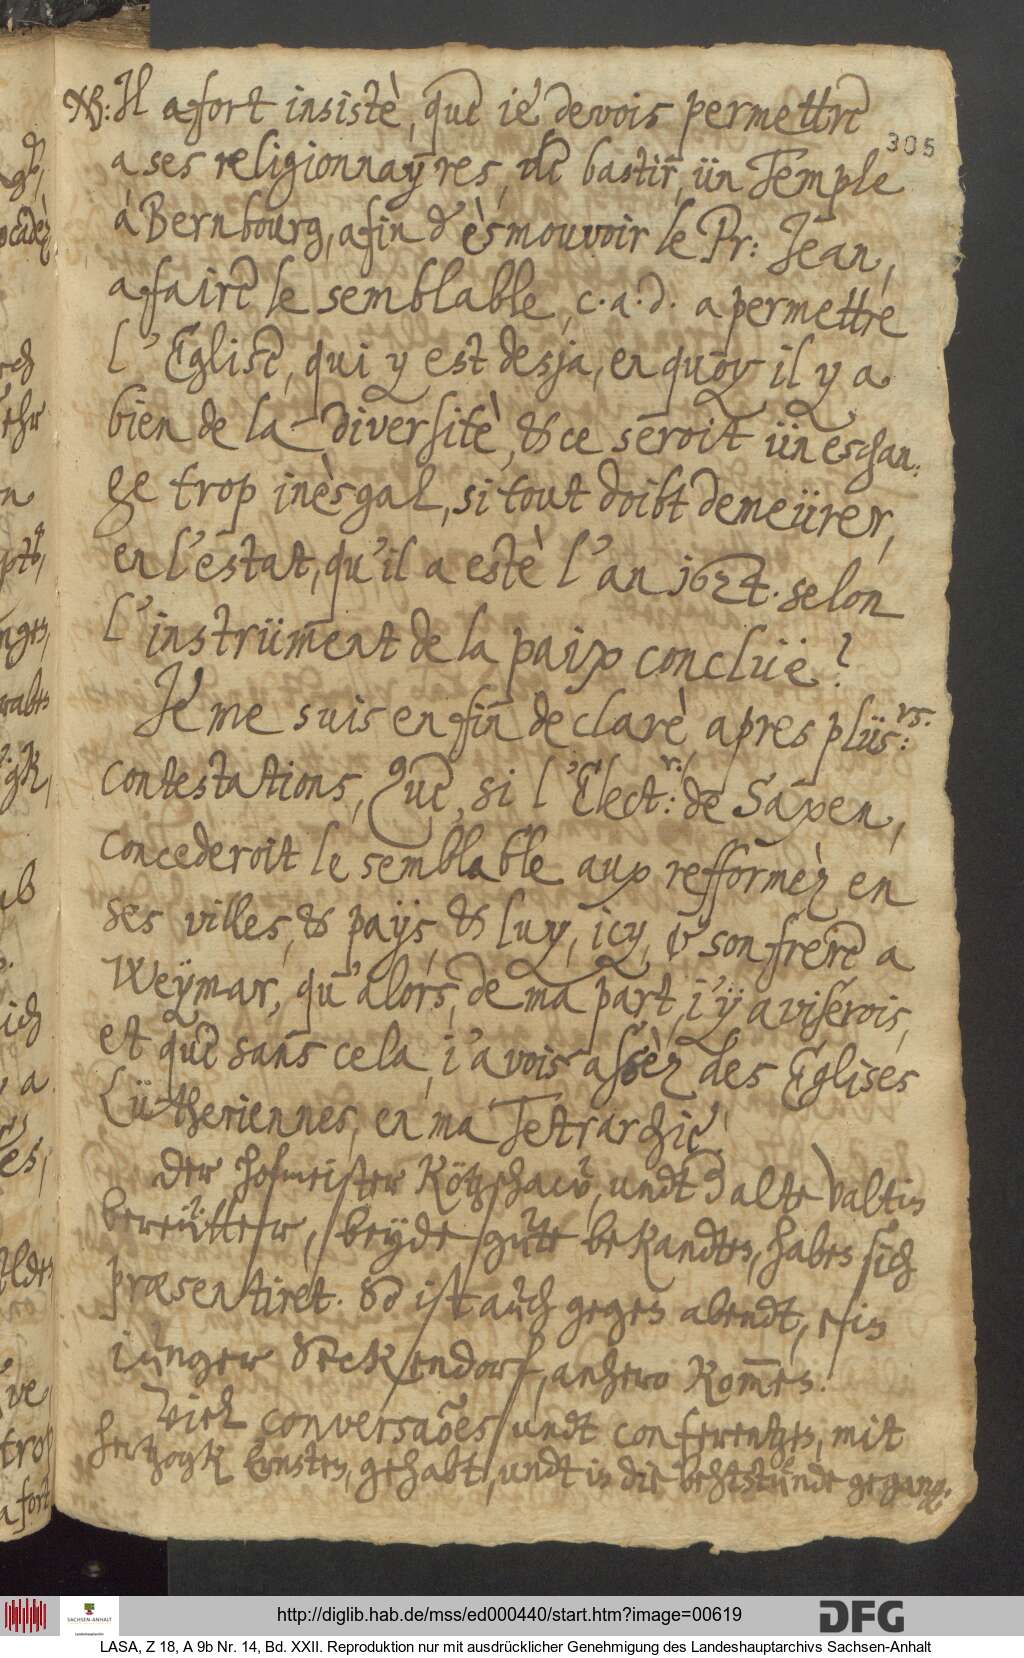 NB: Il a fort insistè, que ie devois permettre
305
a ses religionnaÿres, de bastir, ün Temple
à Bernbourg, afin d'èsmouvoir le Pr: Jean,
a faire le semblable, c.a.d. a permettre
l'Eglise, qui y est desja, en quoy il y a
bien de la diversitè, & ce seroit ün eschan-
ge trop inèsgal, si tout doibt demeürer,
en l'estat, qu'il a estè l'an 1624. selon
l'instrüment de la paix conclüe?
Je me suis enfin declarè, apres plüs:rs.
contestations, Que, si l'Elect:r. de Saxen,
concederoit le semblable aux refformèz en
ses villes, & païjs, & luy, icy, & son frere a
Weÿmar, qu'alors, de ma part, j'ÿ aviserois,
et que sans cela, j'avois assèz des Eglises
Lütheriennes, en ma Tetrarchie.
Der hofmeister Kötschaw, undt der alte Valtin
bereütter, beÿde gute bekandten, haben sich
præsentiret. So ist auch gegen abendt, ein
junger Seckendorf, anhero kommen.
Viel conversaões undt conferentzen, mit
hertzogk Ernsten, gehabt, undt in die behtstunde gegang:
http://diglib.hab.de/mss/ed000440/start.htm?image=00619
DFG
SACHSEN-ANHALT
LASA, Z 18, A 9b Nr. 14, Bd. XXII. Reproduktion nur mit ausdrücklicher Genehmigung des Landeshauptarchivs Sachsen-Anhalt